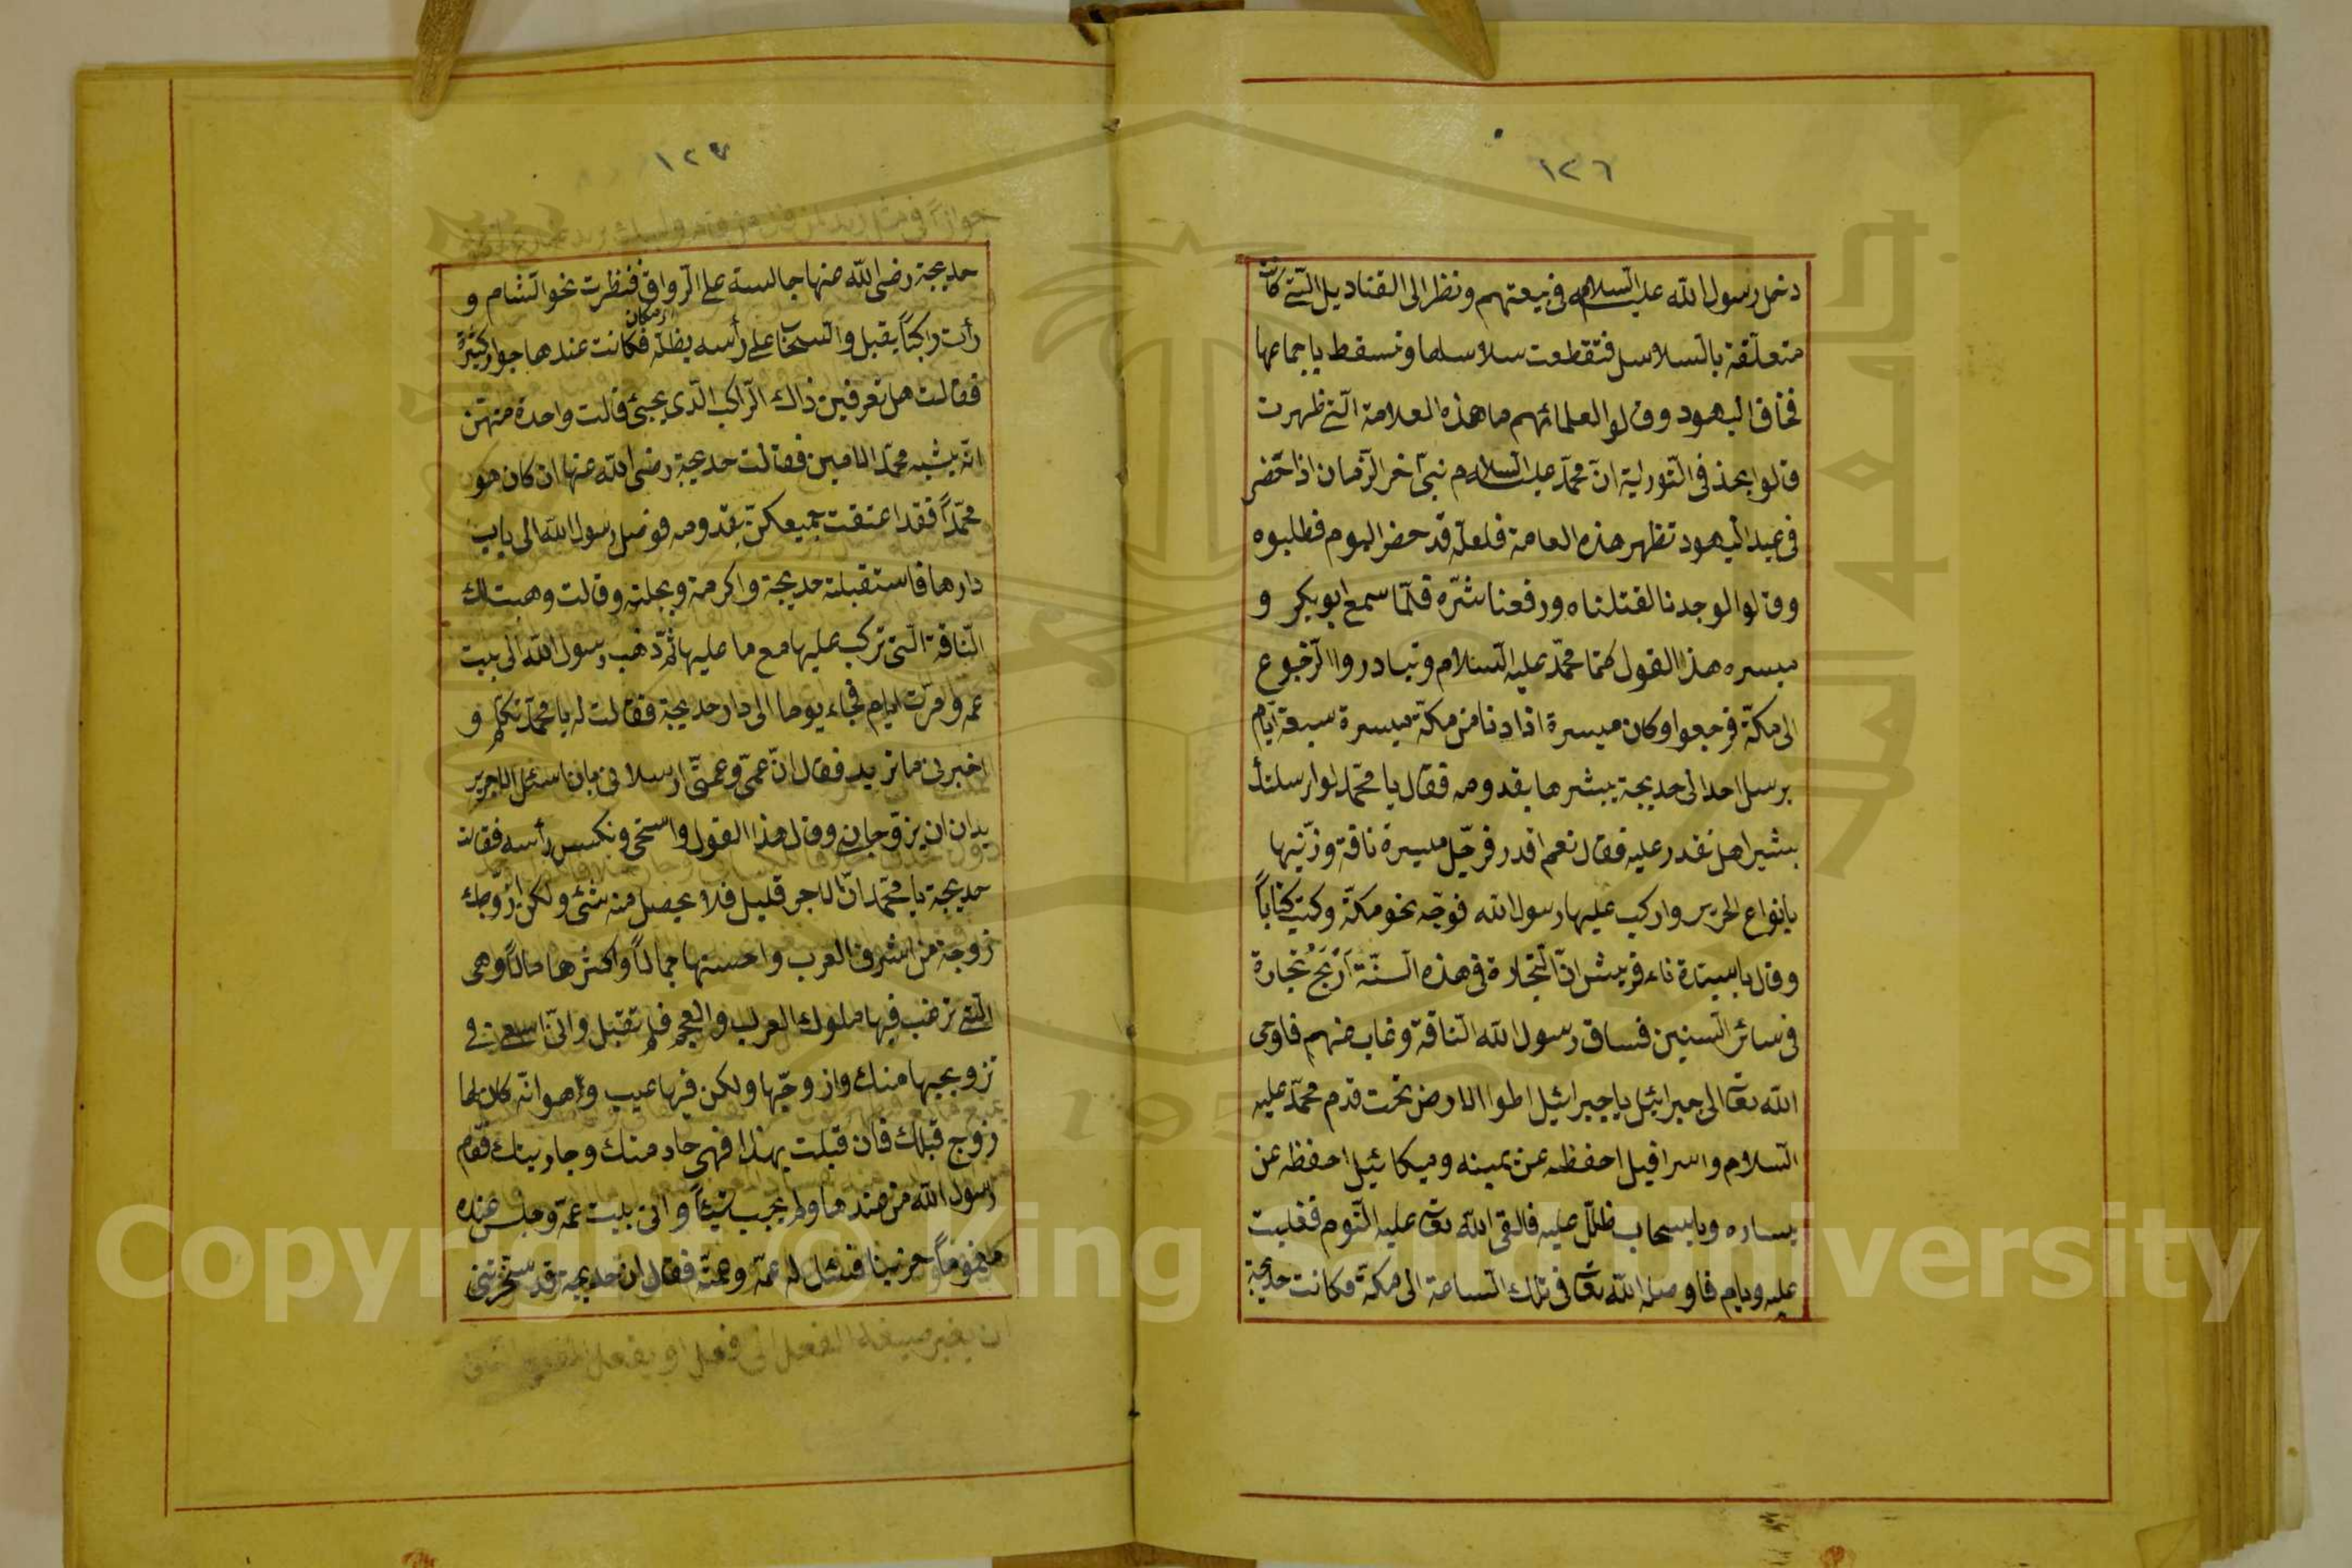 ١٢٦
دخل رسول الله عليه السلام في بيعتهم ونظر الى القناديل التي كانت
متعلقة بالسلاسل فتقطعت سلاسلها وتسقط باجماعها
فخاف اليهود وقالوا لعلمائهم ما هذه العلامة التي ظهرت
قالوا نجد في التورية ان محمد عليه السلام نبي آخر الزمان اذا حضر
في عيد اليهود تظهر هذه العامة فلعله قد حضر اليوم فطلبوه
وقالوا لو وجدنا لقتلناه ورفعنا شره فلما سمع ابو بكر و
ميسره هذا القول كتما محمد عليه السلام وتبادروا الرجوع
الى مكة فرجعوا وكان ميسرة اذا دنا من مكة ميسرة سبعة ايام
يرسل احدا الى خديجة يبشرها بقدومه فقال يا محمد لو ارسلتك
بشيرا هل تقدر عليه فقال نعم اقدر فرحّل ميسرة ناقة وزينها
بانواع الحرير واركب عليها رسول الله فوجه نحو مكة وكتب كتاباً
وقال يا سيدة نساء قريش ان التجارة في هذه السنة اَرْبَحُ تجارة
في سائر السنين فساق رسول الله الناقة وغاب منهم فاوحى
الله تعا الى جبرائيل يا جبرائيل اطوا الارض تحت قدم محمد عليه
السلام واسرافيل احفظه عن يمينه وميكائيل احفظه عن
يساره ويا سحاب ظلل عليه فالقى الله تعا عليه النوم فغلبت
عليه ونام فاوصله الله تعا في تلك الساعة الى مكة وكانت خديجة
١٢٧
خديجة رضى الله عنها جالسة على الرواق فنظرت نحو الشام و
رأت راكباً يقبل والسحاب على رأسه يظله فكانت عندها جوار كثيرة
فقالت هل تعرفين ذاك الراكب الذي يجئ قالت واحدة منهن
انه يشبه محمد الامين فقالت خديجة رضى الله عنها ان كان هو
محمّداً فقد اعتقت جميعكن بقدومه فوصل رسول الله الى باب
دارها فاستقبلته خديجة واكرمته وبجلته وقالت وهبت لك
الناقة التي تركب عليها مع ما عليها ثم ذهب رسول الله الى بيت
عمه ومرت ايام فجاء يوما الى دار خديجة فقالت له يا محمد تكلم و
اخبرنى ما تريد فقال ان عمى وعمتى ارسلانى بان اسئل الاجر ير
يدان ان يزوجانى وقال هذا القول واستحى ونكس رأسه فقالت
خديجة يا محمد ان الاجر قليل فلا يحصل منه شئ ولكن ازوجك
زوجة من اشرف العرب واحسنها جمالاً واكثرها مالاً وهى
التي ترغب فيها ملوك العرب والعجم فلم تقبل وانى اسعى فى
تزويجها منك وازوجها ولكن فيها عيب وهو انه كان لها
زوج قبلك فان قبلت بهذا فهى خادمتك وجاريتك فقام
رسول الله من عندها ولم يجب شيئاً واتى بيت عمه وجلس عنده
مغموماً حزينا فسئل له عمه وعمته فقال ان خديجة قد سخرتنى
Copyright © King Saud University